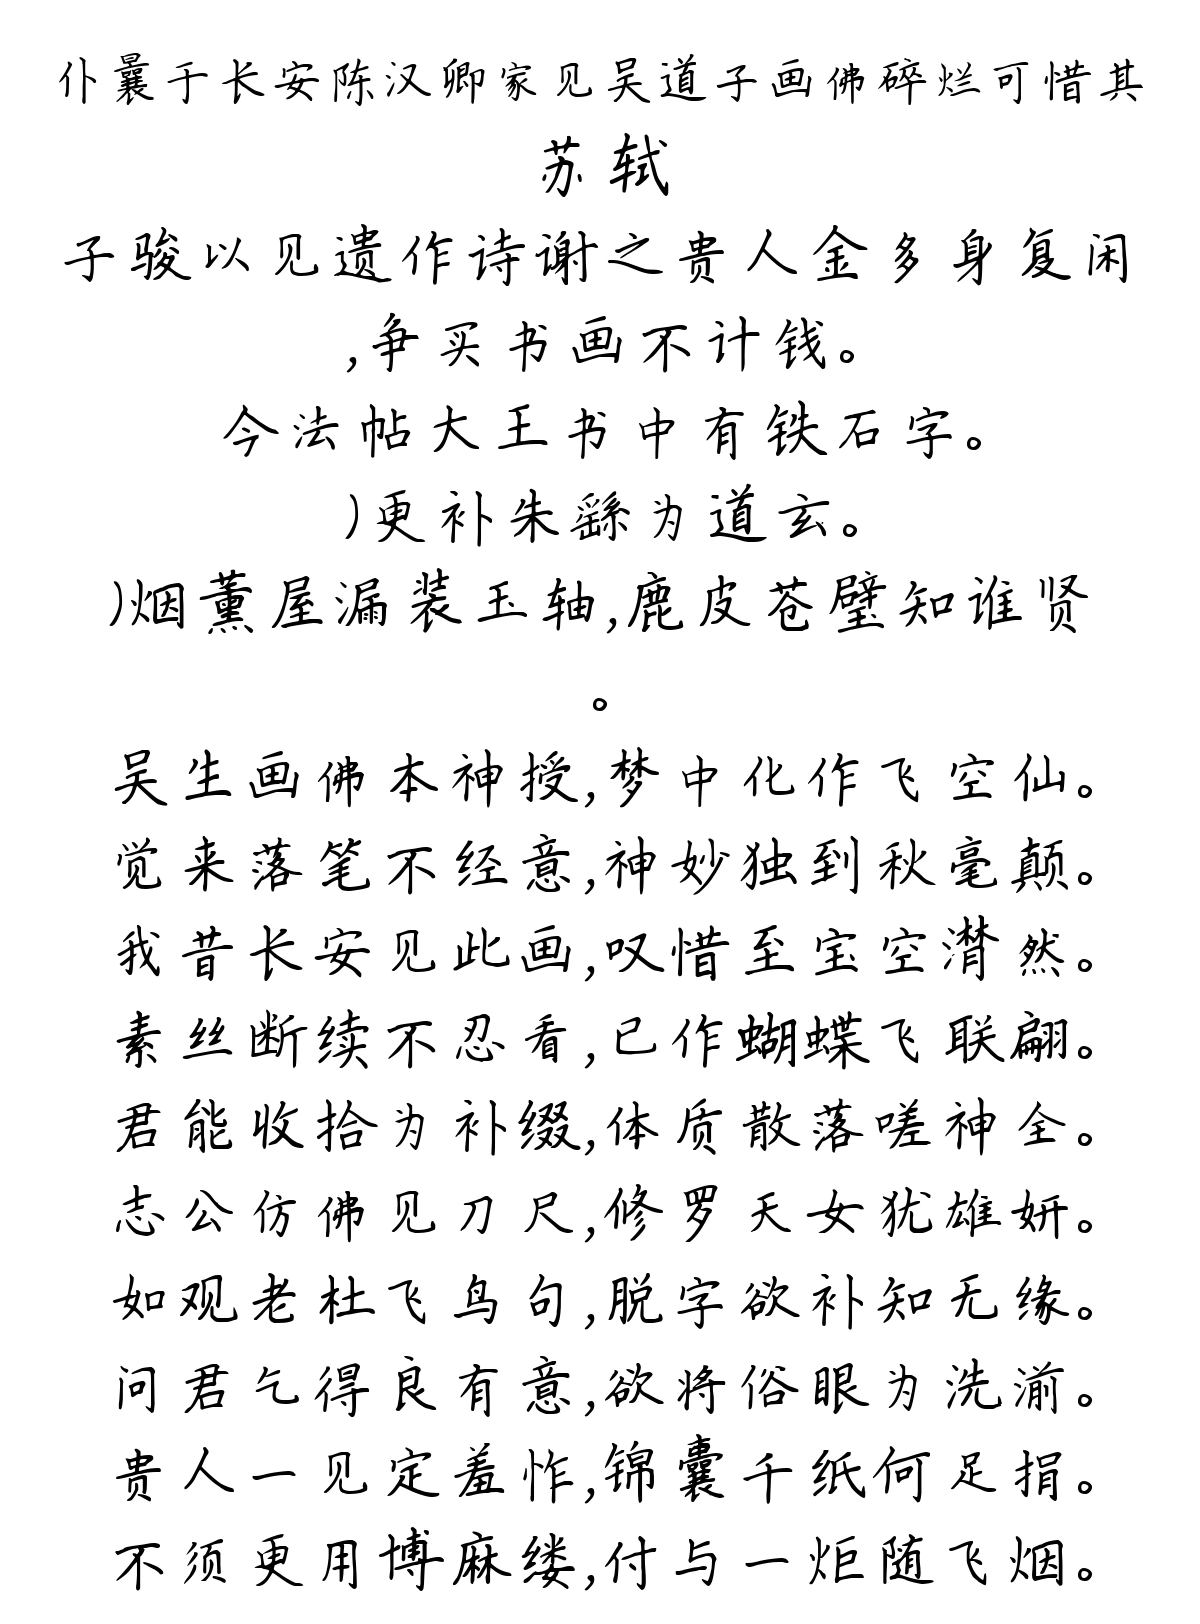 仆曩于长安陈汉卿家见吴道子画佛碎烂可惜其
苏轼
子骏以见遗作诗谢之贵人金多身复闲
,争买书画不计钱。
今法帖大王书中有铁石字。
)更补朱繇为道玄。
)烟薰屋漏装玉轴,鹿皮苍璧知谁贤
。
吴生画佛本神授,梦中化作飞空仙。
觉来落笔不经意,神妙独到秋毫颠。
我昔长安见此画,叹惜至宝空潸然。
素丝断续不忍看,已作蝴蝶飞联翩。
君能收拾为补缀,体质散落嗟神全。
志公仿佛见刀尺,修罗天女犹雄妍。
如观老杜飞鸟句,脱字欲补知无缘。
问君乞得良有意,欲将俗眼为洗湔。
贵人一见定羞怍,锦囊千纸何足捐。
不须更用博麻缕,付与一炬随飞烟。